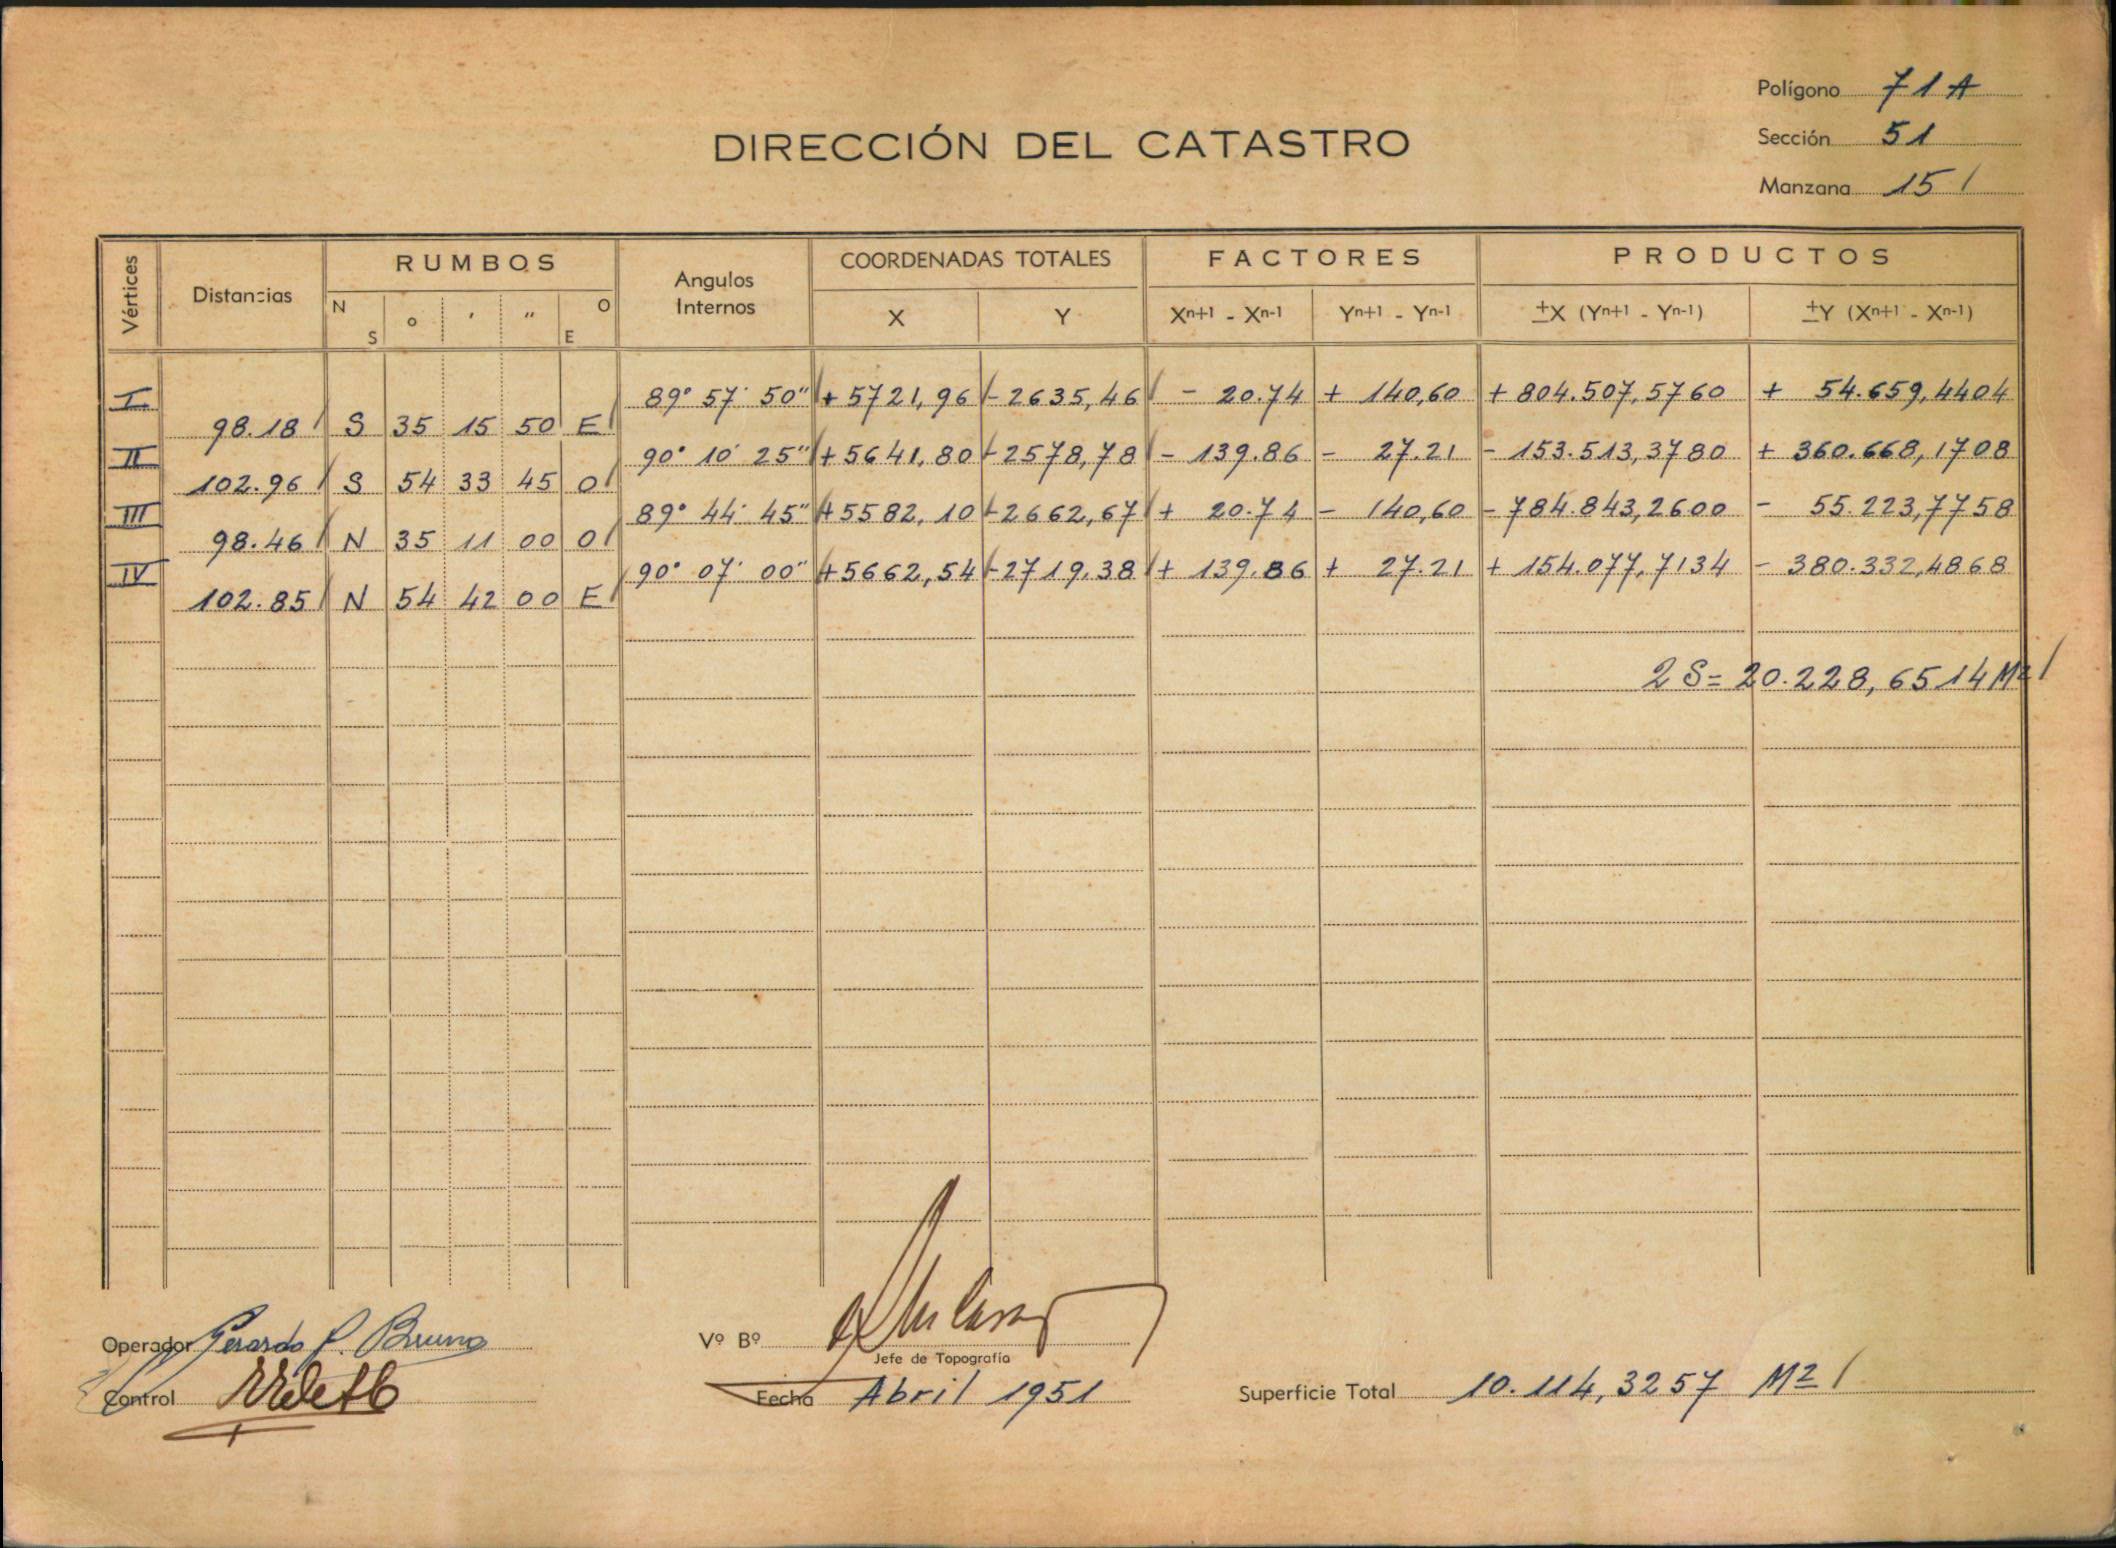 Polígono 71A
DIRECCIÓN DEL CATASTRO
Sección 51
Manzana 15
Vértices Distancias RUMBOS N S o ' " O E Angulos Internos COORDENADAS TOTALES X Y FACTORES Xn+1 - Xn-1 Yn+1 - Yn-1 PRODUCTOS ±X (Yn+1 - Yn-1) ±Y (Xn+1 - Xn-1)
I 89° 57' 50" + 5721,96 - 2635,46 - 20.74 + 140,60 + 804.507,5760 + 54.659,4404
98.18 S 35 15 50 E
II 90° 10' 25" + 5641,80 - 2578,78 - 139.86 - 27.21 - 153.513,3780 + 360.668,1708
102.96 S 54 33 45 O
III 89° 44' 45" + 5582,10 - 2662,67 + 20.74 - 140,60 - 784.843,2600 - 55.223,7758
98.46 N 35 11 00 O
IV 90° 07' 00" + 5662,54 - 2719,38 + 139.86 + 27.21 + 154.077,7134 - 380.332,4868
102.85 N 54 42 00 E
2 S = 20.228,6514 M2
Operador Gerardo P. Bruno
Vº Bº
Jefe de Topografía
Control
Fecha Abril 1951
Superficie Total 10.114,3257 M2